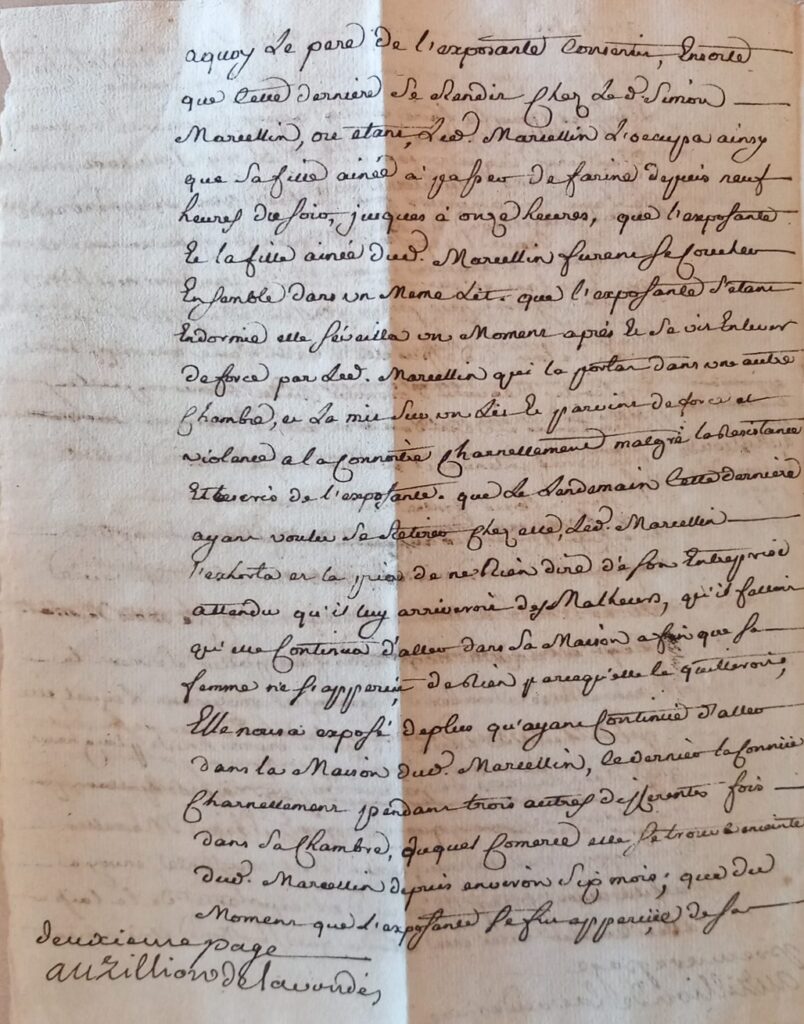 aquoy Le pere de l'exposante Consentit, Ensorte
que Cette derniere se Rendit Chez Led. Simon
Marcellin, ou etant, Led. Marcellin L'occupa ainsy
que sa fille ainée a passer de farine depuis neuf
heures du soir, jusques à onze heures, que l'exposante
Et la fille ainée dud. Marcellin furent se Coucher
Ensemble dans un Meme Lit. que l'exposante s'etant
Endormie elle s'éveilla un Moment aprés Et se vit Enlever
de force par Led. Marcellin qui la porta dans une autre
Chambre, et La mit sur un Lit Et parvint de force et
violance a la Connoitre Charnellement malgré la Resistance
Et les cris de l'exposante. que Le Lendemain Cette derniere
ayant voulu se Retirer Chez elle, Led. Marcellin
l'exhorta et la pria de ne Rien dire de son Entreprise
attendu qu'il luy arriveroit des Malheurs, qu'il falloit
qu'elle Continua d'aller dans sa Maison afin que sa
femme ne s'apperçut de Rien parcequ'elle le quitteroit,
Elle nous a exposé deplus qu'ayant Continué d'aller
dans la Maison dud. Marcellin, le dernier la Connut
Charnellement pendant trois autres differentes fois
dans sa Chambre, duquel Comerce elle se trouve enceinte
dud. Marcellin depuis environ Six mois; que du
Moment que L'exposante se fut apperçüe de sa
deuxieme page